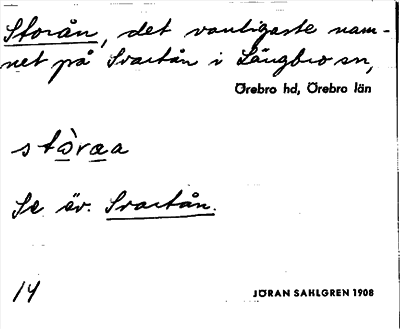 Storån, det vanligaste nam-
net på Svartån i Längbro sn,
Örebro hd, Örebro län
stòraa
Se äv. Svartån.
14
JÖRAN SAHLGREN 1908